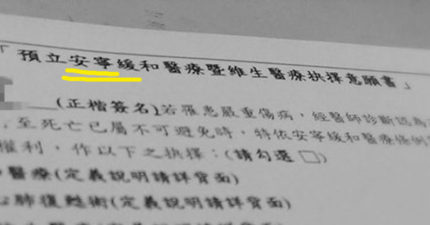 「預立安寧緩和醫療暨維生醫療抉擇意願書」
(正楷簽名)若罹患嚴重傷病，經醫師診斷認為
，至死亡已屬不可避免時，特依安寧緩和醫療條例
權利，作以下之抉擇：(請勾選□)
醫療(定義說明請詳背面)
心肺復甦術(定義說明請詳背面)